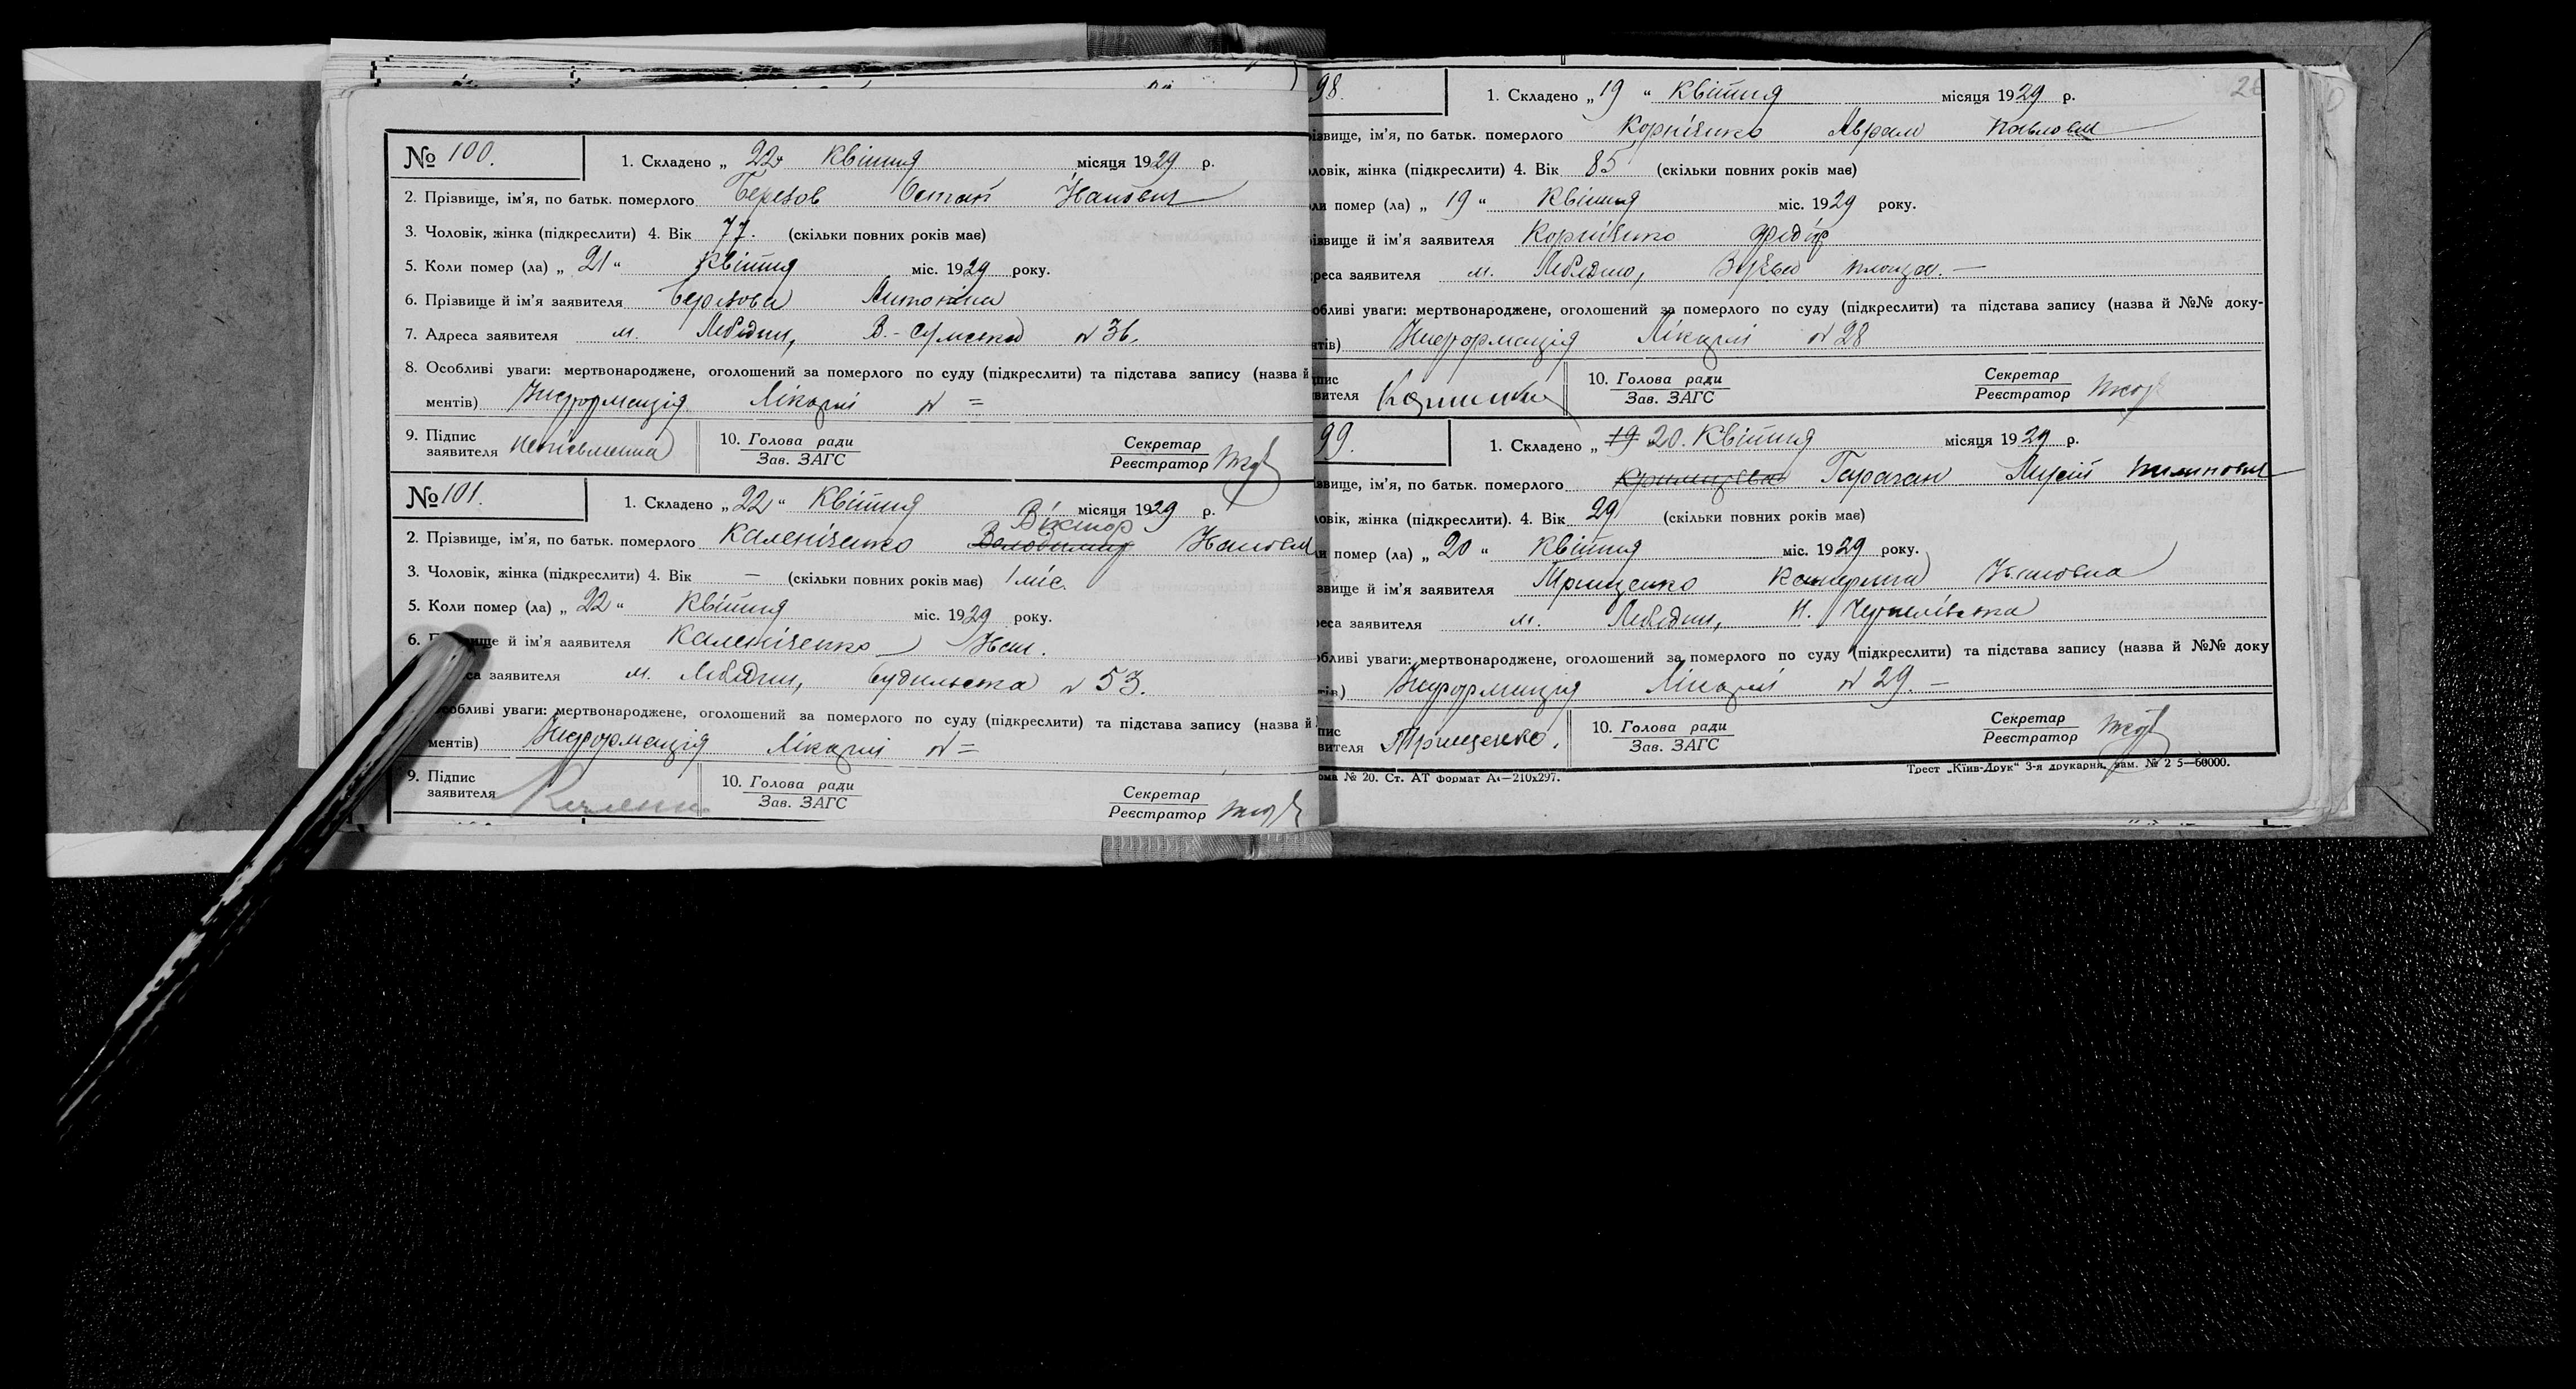 № 100.
1. Складено „ 22 Квітня місяця 1929 р.
2. Прізвище, ім'я, по батьк. померлого Березов Остап Іванович
3. Чоловік, жінка (підкреслити) 4. Вік 77. (скільки повних років має)
5. Коли помер (ла) „ 21 “ Квітня міс. 1929 року.
6. Прізвище й ім'я заявителя Березова Антоніна
7. Адреса заявителя м. Лебедин, В.-Сумська № 36.
8. Особливі уваги: мертвонароджене, оголошений за померлого по суду (підкреслити) та підстава запису (назва й
ментів) Информація Лікарні № =
9. Підпис заявителя неписьменна
10. Голова ради
Зав. ЗАГС
Секретар
Реєстратор
№ 101.
1. Складено „ 22 “ Квітня місяця 1929 р.
Віктор
2. Прізвище, ім'я, по батьк. померлого Каленіченко Володимир Іванович
3. Чоловік, жінка (підкреслити) 4. Вік — (скільки повних років має) 1 міс.
5. Коли помер (ла) „ 22 “ Квітня міс. 1929 року.
6. й ім'я заявителя Каленіченко Іван.
заявителя м. Лебедин, Будильська № 53.
уваги: мертвонароджене, оголошений за померлого по суду (підкреслити) та підстава запису (назва й
ментів) Информація Лікарні № =
9. Підпис заявителя
10. Голова ради
Зав. ЗАГС
Секретар
Реєстратор
98.
1. Складено „ 19 “ Квітня місяця 1929 р.
ізвище, ім'я, по батьк. померлого Корнієнко Аврам Павлович
ловік, жінка (підкреслити) 4. Вік 85 (скільки повних років має)
ли помер (ла) „ 19 “ Квітня міс. 1929 року.
ізвище й ім'я заявителя Корнієнко Федір
реса заявителя м. Лебедин, площа. —
обливі уваги: мертвонароджене, оголошений за померлого по суду (підкреслити) та підстава запису (назва й №№ доку-
тів) Информація Лікарні № 28
пис
вителя
10. Голова ради
Зав. ЗАГС
Секретар
Реєстратор
99.
1. Складено „ 19 20. Квітня місяця 1929 р.
звище, ім'я, по батьк. померлого Тарасан Мусій
ловік, жінка (підкреслити). 4. Вік 29 (скільки повних років має)
ли помер (ла) „ 20 “ Квітня міс. 1929 року.
звище й ім'я заявителя Трищенко Катерина Івановна
реса заявителя м. Лебедин,
обливі уваги: мертвонароджене, оголошений за померлого по суду (підкреслити) та підстава запису (назва й №№ доку
тів) Информація Лікарні № 29. —
пис
вителя Трищенко.
10. Голова ради
Зав. ЗАГС
Секретар
Реєстратор
рма № 20. Ст. АТ формат А4—210х297.
Трест „Київ-Друк“ 3-я друкарня, зам. № 2 5—60000.